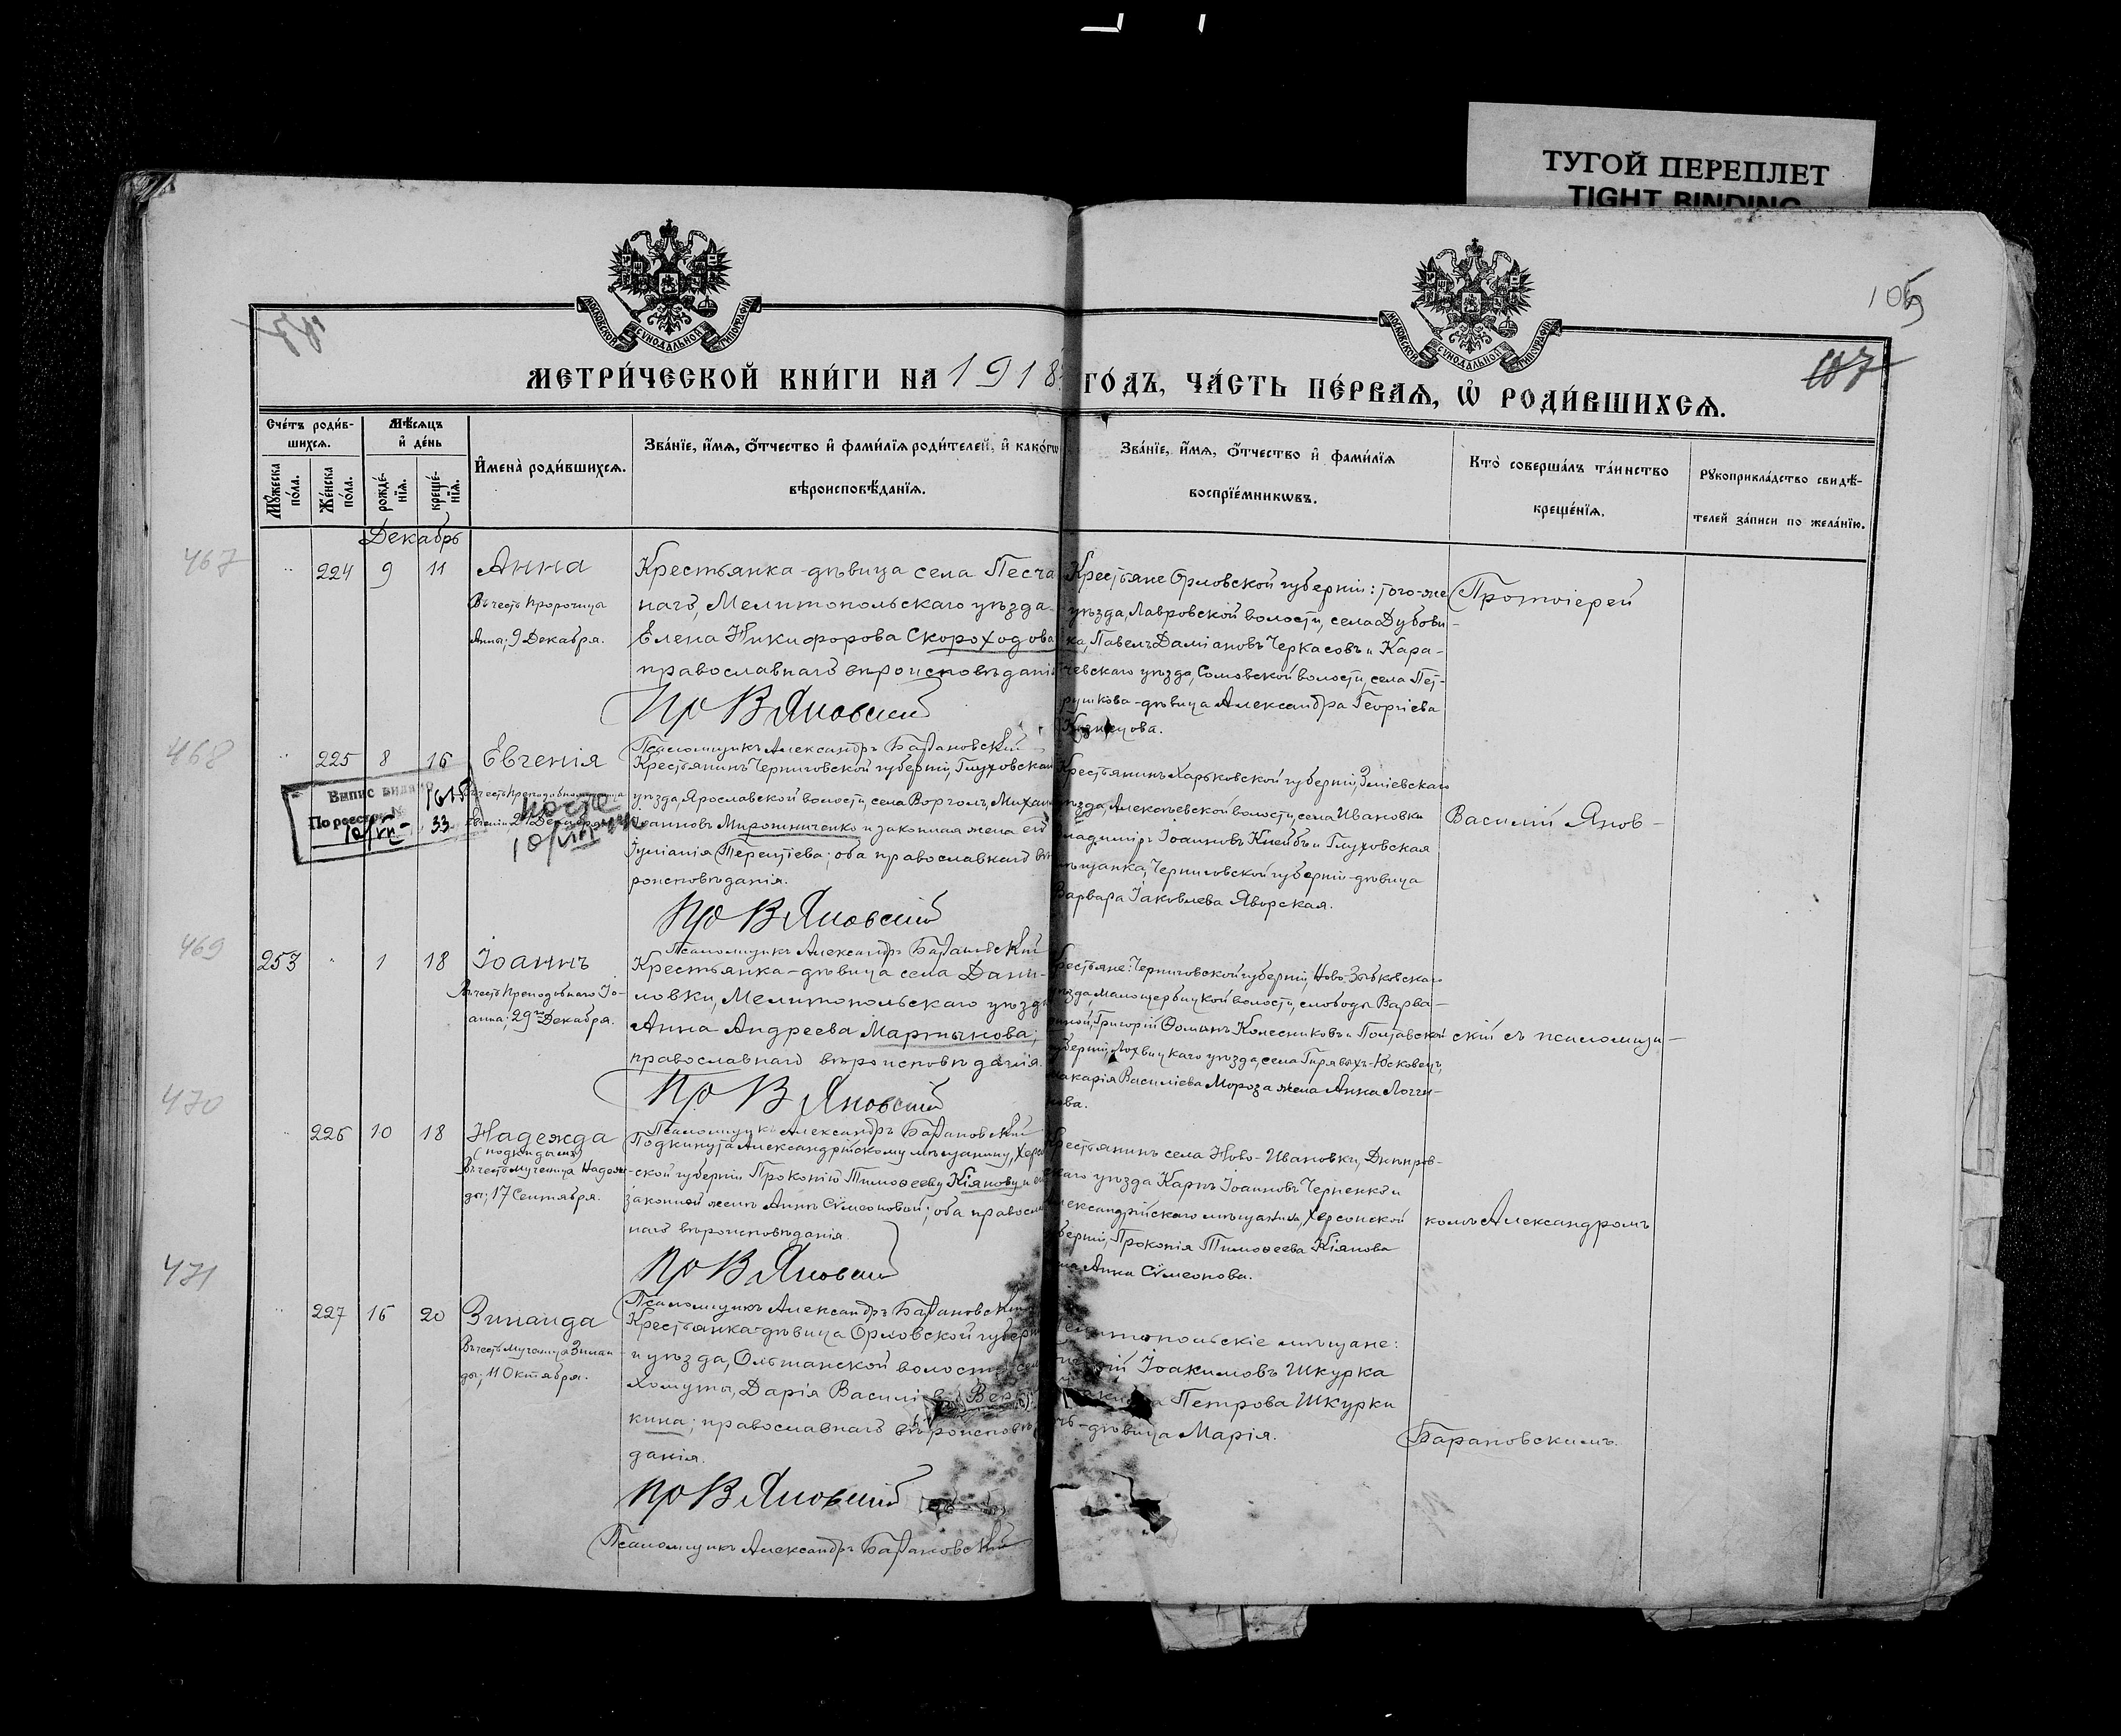 ТУГОЙ ПЕРЕПЛЕТ
TIGHT BINDING
МОСКОВСКОЙ СѴНОДАЛЬНОЙ ТИПОГРАФІИ
МОСКОВСКОЙ СѴНОДАЛЬНОЙ ТИПОГРАФІИ
107
МЕТРИ́ЧЕСКОЙ КНИ́ГИ НА 1918 ГО́ДЪ, ЧА́СТЬ ПЕ́РВАѦ, Ѡ РОДИ́ВШИХСѦ.
Сче́тъ роди́в-
шихсѧ.
Мꙋ́жеска по́ла.
Же́нска по́ла.
Мѣ́сѧцъ
и҆ де́нь
рожде́-
нїѧ.
креще́-
нїѧ.
И҆мена̀ роди́вшихсѧ.
Зва́нїе, и҆́мѧ, ѻ҆́тчество и҆ фами́лїѧ роди́телей, и҆ како́гѡ
вѣроисповѣ́данїѧ.
Зва́нїе, и҆́мѧ, ѻ҆́тчество и҆ фами́лїѧ
воспрїе́мникѡвъ.
Кто̀ соверша́лъ та́инство
креще́нїѧ.
Рꙋкоприкла́дство свидѣ́-
телей за́писи по жела́нїю.
Декабрь
467
224 9 11 Анна
Въ честь Пророчицы
Анны; 9 Декабря.
Крестьянка-дѣвица села Песча
наго, Мелитопольскаго уѣзда
Елена Никифорова Скороходова
православнаго вѣроисповѣданія
Пр В Яновскій
Псаломщикъ Александръ Барановскій
Крестьяне Орловской губерніи: того-же
уѣзда, Лавровской волости, села Дубови-
ка, Павелъ Даміановъ Черкасовъ и Кара-
чевскаго уѣзда, Сомовской волости, села Пет-
рушкова-дѣвица Александра Георгіева
Кузнецова.
Протоіерей
468
225 8 16 Евгенія
Евгеніи 24 Декабря
Выпис видано
По реестр №
10/VII 33
10/VIII
Крестьянинъ Черниговской губерніи, Глуховскаго
уѣзда, Ярославской волости, села Воргола, Михаилъ
Іоанновъ Мирошниченко и законная жена его
Іуліанія Терентіева; оба православнаго вѣ
роисповѣданія.
Пр В Яновскій
Псаломщикъ Александръ Барановскій
Крестьянинъ Харьковской губерніи, Зміевскаго
уѣзда, Алексѣевской волости, села Ивановки
Владиміръ Іоанновъ и Глуховская
мѣщанка, Черниговской губерніи-дѣвица
Варвара Іаковлева Яворская.
Василій Янов-
469
253 1 18 Іоаннъ
Въ честь Преподобнаго Іо-
анна; 29го Декабря.
Крестьянка-дѣвица села Дани-
ловки, Мелитопольскаго уѣзда
Анна Андреева Мартынова;
православнаго вѣроисповѣданія.
Пр В Яновскій
Псаломщикъ Александръ Барановскій
Крестьяне: Черниговской губерніи, Ново-Зыбковскаго
уѣзда, Малощербицкой волости, слободы Варва-
Григорій Ѳоминъ Колесниковъ и Полтавской
губерніи, Лохвицкаго уѣзда, села Гирявыхъ-Юсковецъ,
Макарія Василіева Мороза жена Анна Логги-
нова.
скій съ псаломщи-
470
226 10 18 Надежда
(подкидышъ)
Въ честь Мученицы Надеж-
ды; 17 Сентября.
Подкинута Александрійскому мѣщанину, Херсон
ской губерніи Прокопію Тимоѳееву Кіянову и его
законной женѣ Аннѣ Сѵмеоновой; оба православ
наго вѣроисповѣданія.
Пр В Яновскій
Псаломщикъ Александръ Барановскій
Крестьянинъ села Ново-Ивановки, Днѣпров-
скаго уѣзда Карпъ Іоанновъ Черненко и
Александрійскаго мѣщанина, Херсонской
губерніи, Прокопія Тимоѳеева Кіянова
жена Анна Сѵмеонова.
комъ Александромъ
471
227 16 20 Зинаида
Въ честь Мученицы Зинаи
ды; 11 Октября.
Крестьянка-дѣвица Орловской губерніи
и уѣзда, Ольшанской волости, села
Хомуты, Дарія Василіева
кина; православнаго вѣроисповѣ
данія.
Пр В Яновскій
Псаломщикъ Александръ Барановскій
Мелитопольскіе мѣщане:
Іоакимовъ Шкурка
Петрова Шкурки
дочь-дѣвица Марія.
Барановскимъ.